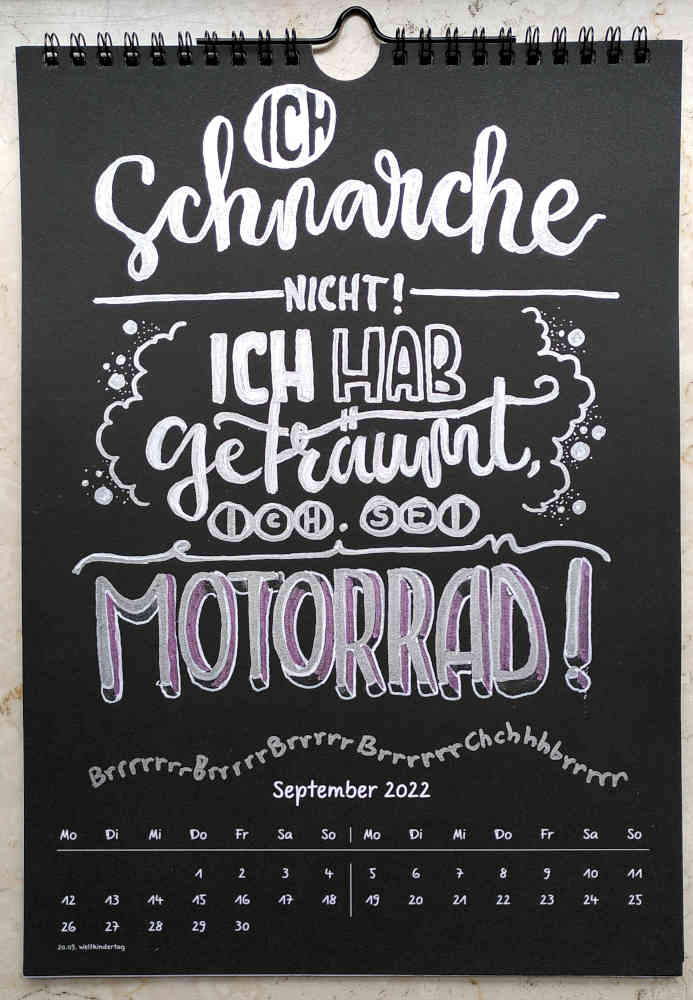 ICH
Schnarche
NICHT!
ICH HAB
geträumt,
ICH. SEI
MOTORRAD!
Brrrrrrr Brrrrr Brrrrr Brrrrrr Chchhhbrrrrr
September 2022
Mo Di Mi Do Fr Sa So | Mo Di Mi Do Fr Sa So
1 2 3 4 5 6 7 8 9 10 11
12 13 14 15 16 17 18 19 20 21 22 23 24 25
26 27 28 29 30
20.09. Weltkindertag